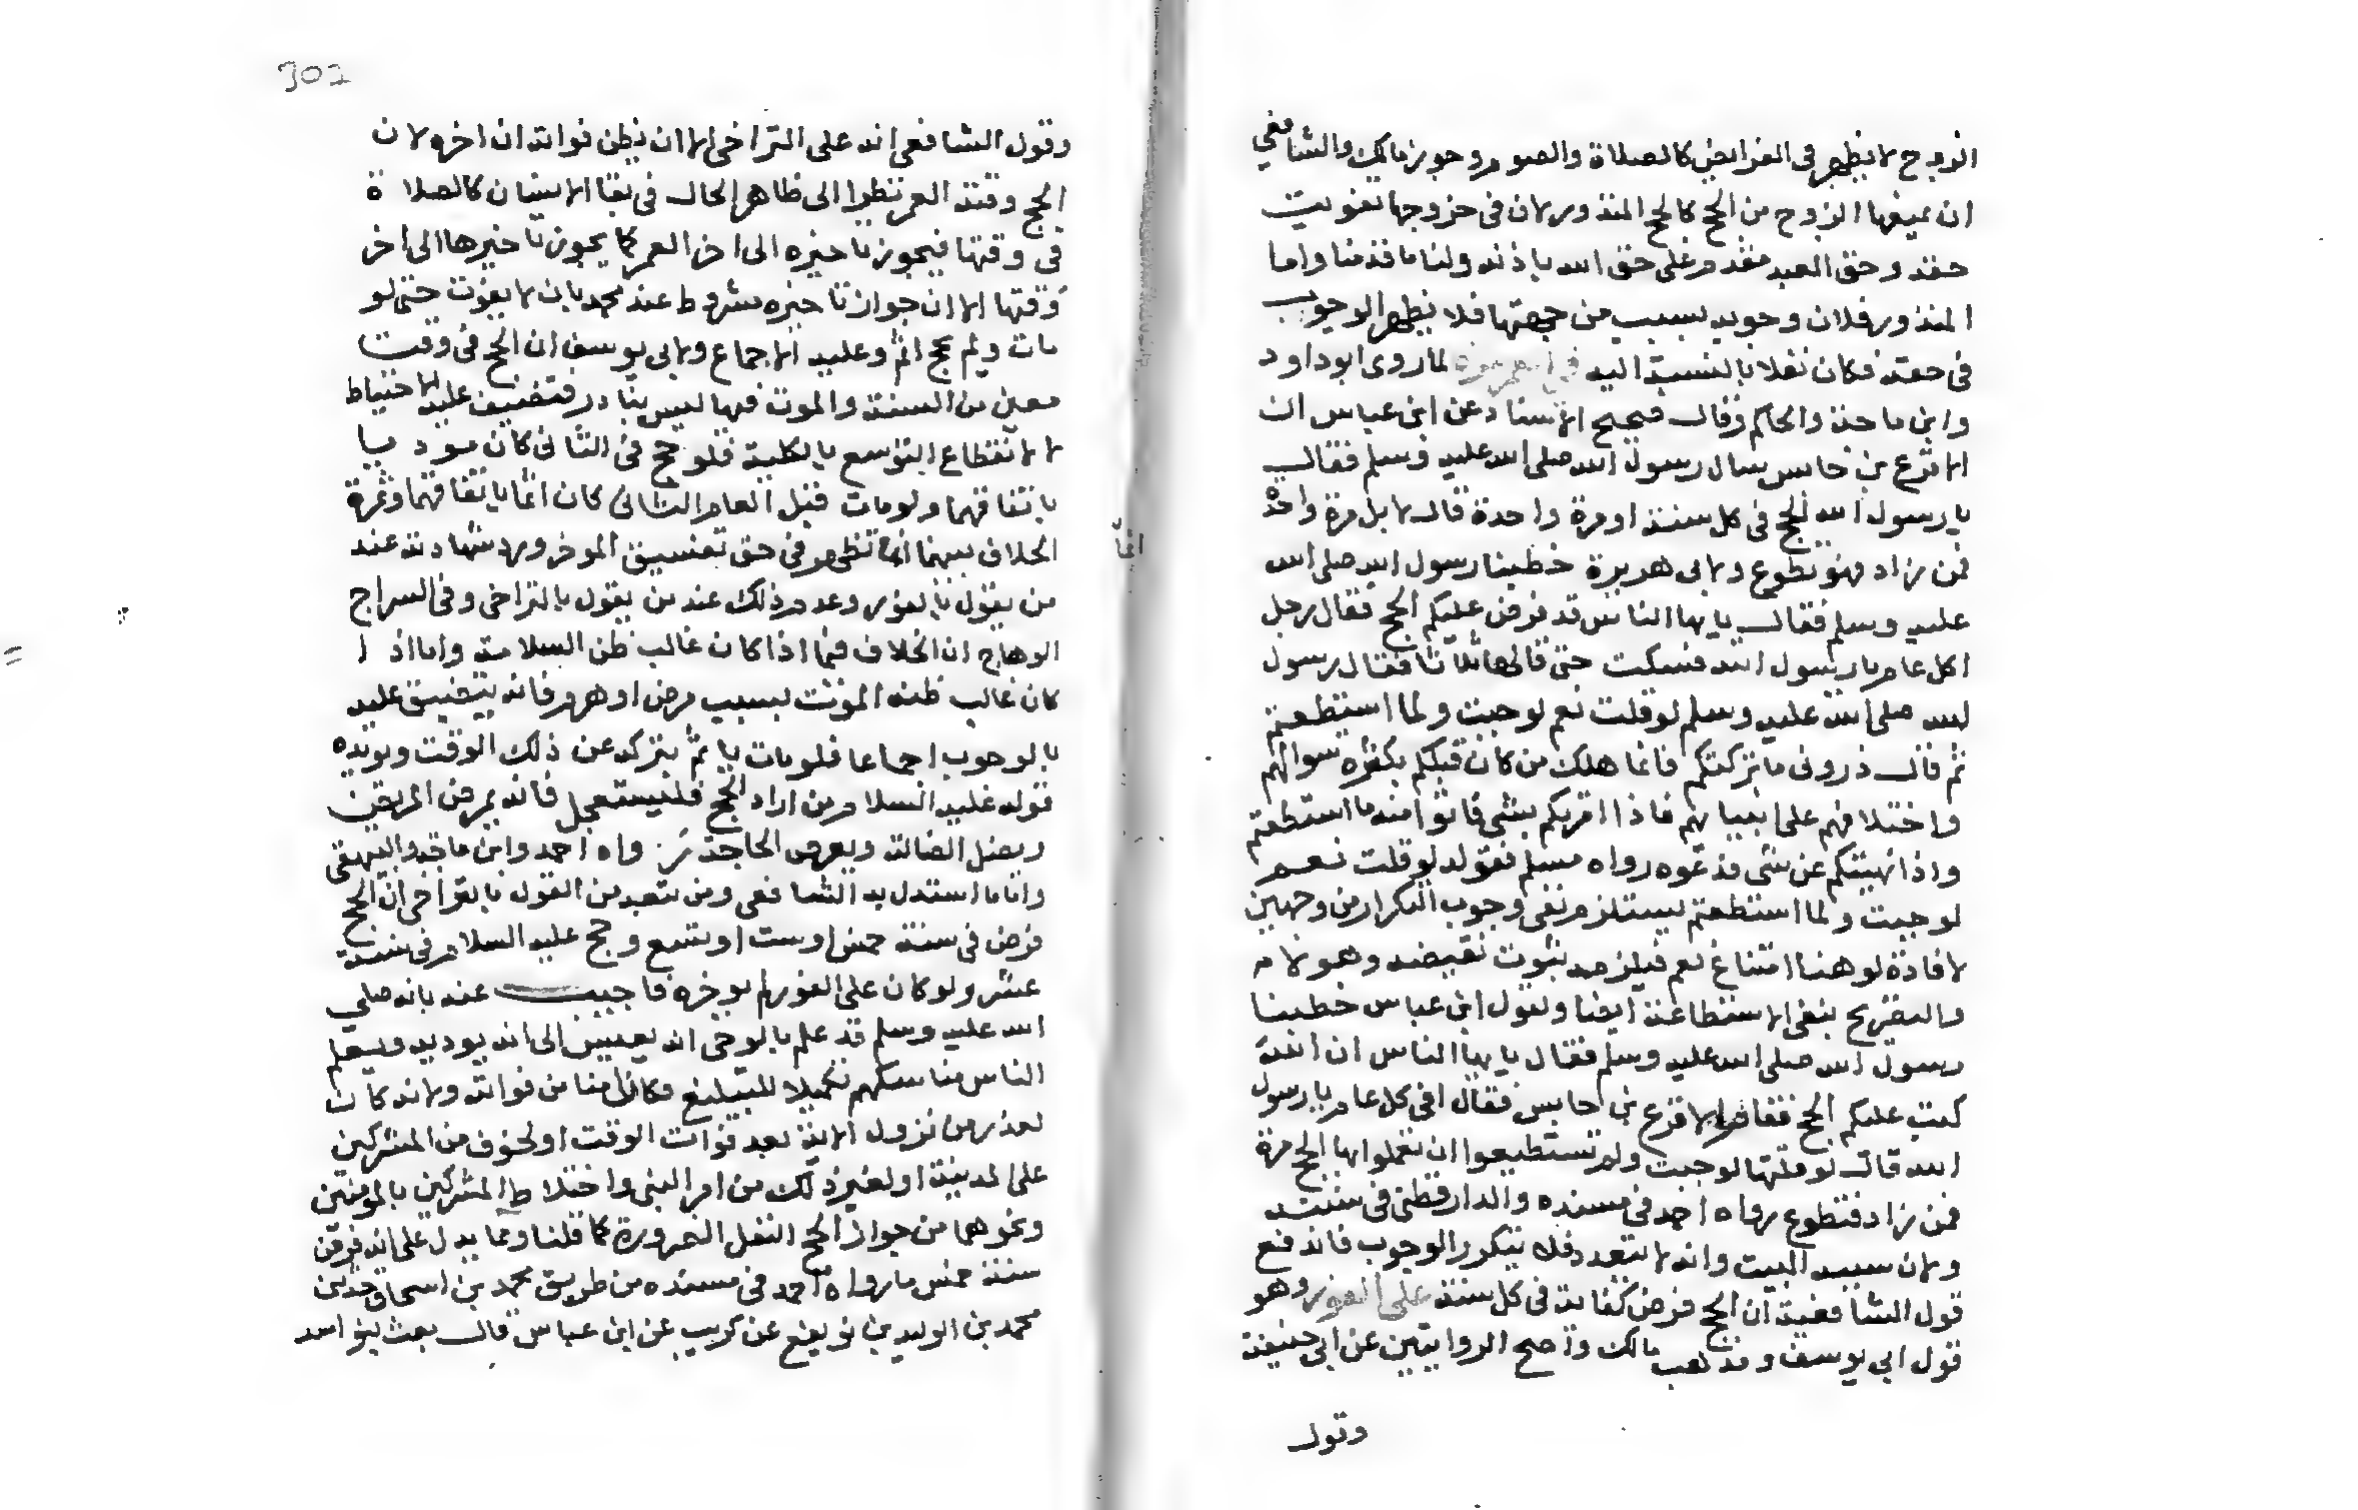 الزوج لا يظهر فى الفرائض كالصلاة والصوم وجوز مالك والشافعي
ان يمنعها الزوج من الحج كالحج المنذور لان فى خروجها تفويت
حقه وحق العبد مقدم على حق الله باذنه ولنا ما قدمنا واما
المنذور فلان وجوبه بسبب من جهتها فلا يظهر الوجوب
فى حقه فكان نفلا بالنسبة اليه فى لما روى ابو داود
وابن ماجه والحاكم وقال صحيح الاسناد عن ابن عباس ان
الاقرع بن حابس سال رسول الله صلى الله عليه وسلم فقال
يا رسول الله الحج فى كل سنة او مرة واحدة قال لا بل مرة واحدة
فمن زاد فهو تطوع ولابى هريرة خطبنا رسول الله صلى الله
عليه وسلم فقال يايها الناس قد فرض عليكم الحج فقال رجل
اكل عام يا رسول الله فسكت حتى قالها ثلاثا فقال رسول
لله صلى الله عليه وسلم لو قلت نعم لوجبت ولما استطعتم
ثم قال ذرونى ما تركتكم فانما هلك من كان قبلكم بكثرة سوالهم
واختلافهم على انبيائهم فاذا امرتكم بشى فاتوا منه ما استطعتم
واذا نهيتكم عن شى فدعوه رواه مسلم فقوله لو قلت نعم
لوجبت ولما استطعتم يستلزم نفى وجوب التكرار من وجهين
لافادة لو هنا امتناع نعم فيلزمه ثبوت نقيضه وهو لا
والتصريح بنفى الاستطاعة ايضا ولقول ابن عباس خطبنا
رسول الله صلى الله عليه وسلم فقال يايها الناس ان الله
كتب عليكم الحج فقام الاقرع بن حابس فقال افى كل عام يا رسول
الله قال لو قلتها لوجبت ولم تستطيعوا ان تعملوا بها الحج مرة
فمن زاد فتطوع رواه احمد فى مسنده والدارقطنى فى سننه
ولان سببه البيت وانه لا يتعدد فلا يتكرر الوجوب فاندفع
قول الشافعية ان الحج فرض كفاية فى كل سنة على الفور وهو
قول ابى يوسف ومذهب مالك واصح الروايتين عن ابى حنيفة
وقول
302
وقول الشافعى انه على التراخى الا ان يظن فواته ان اخره لان
الحج وقته العمر نظرا الى ظاهر الحال فى بقا الانسان كالصلاة
فى وقتها فيجوز تاخيره الى اخر العمر كما يجوز تاخيرها الى اخر
وقتها الا ان جواز تاخيره مشروط عند محمد بان لا يفوت حتى لو
مات ولم يحج اثم وعليه الاجماع ولابى يوسف ان الحج فى وقت
معين من السنة والموت فيها ليس بنادر فتضيق عليه للاحتياط
لا لانقطاع التوسع بالكلية فلو حج فى الثانى كان موديا
باتفاقهما ولو مات قبل العام الثانى كان اثما باتفاقهما وثمرة
الخلاف بينهما انما تظهر فى حق تفسيق الموخر ورد شهادته عند
من يقول بالفور وعدم ذلك عند من يقول بالتراخى وفى السراج
الوهاج ان الخلاف فيما اذا كان غالب ظن السلامة واما اذا
كان غالب ظنه الموت بسبب مرض او هرم فانه يتضيق عليه
بالوجوب اجماعا فلو مات ياثم بتركه عن ذلك الوقت ويويده
قوله عليه السلام من اراد الحج فليستعجل فانه يمرض المريض
ويضل الضالة ويعرض الحاجة رواه احمد وابن ماجه والبيهقى
واما ما استدل به الشافعى ومن تبعه من القول بالتراخى ان الحج
فرض فى سنة خمس او ست او تسع وحج عليه السلام فى سنة
عشر ولو كان على الفور لم يوخره فاجيب عنه بانه صلى
الله عليه وسلم قد علم بالوحى انه يعيش الى انه يوديه ويعلم
الناس مناسكهم تكميلا للتبليغ فكان امنا من فواته ولانه كان
لعذر من نزول الاية بعد فوات الوقت او لخوف من المشركين
على المدينة او لغير ذلك من امر النبى واختلاط المشركين بالمومنين
ونحوهما من جواز الحج النفل الضرورة كما قلنا ومما يدل على انه فرض
سنة خمس ما رواه احمد فى مسنده من طريق محمد بن اسحاق حدثنى
محمد بن الوليد بن نويفع عن كريب عن ابن عباس قال بعث بنو اسد